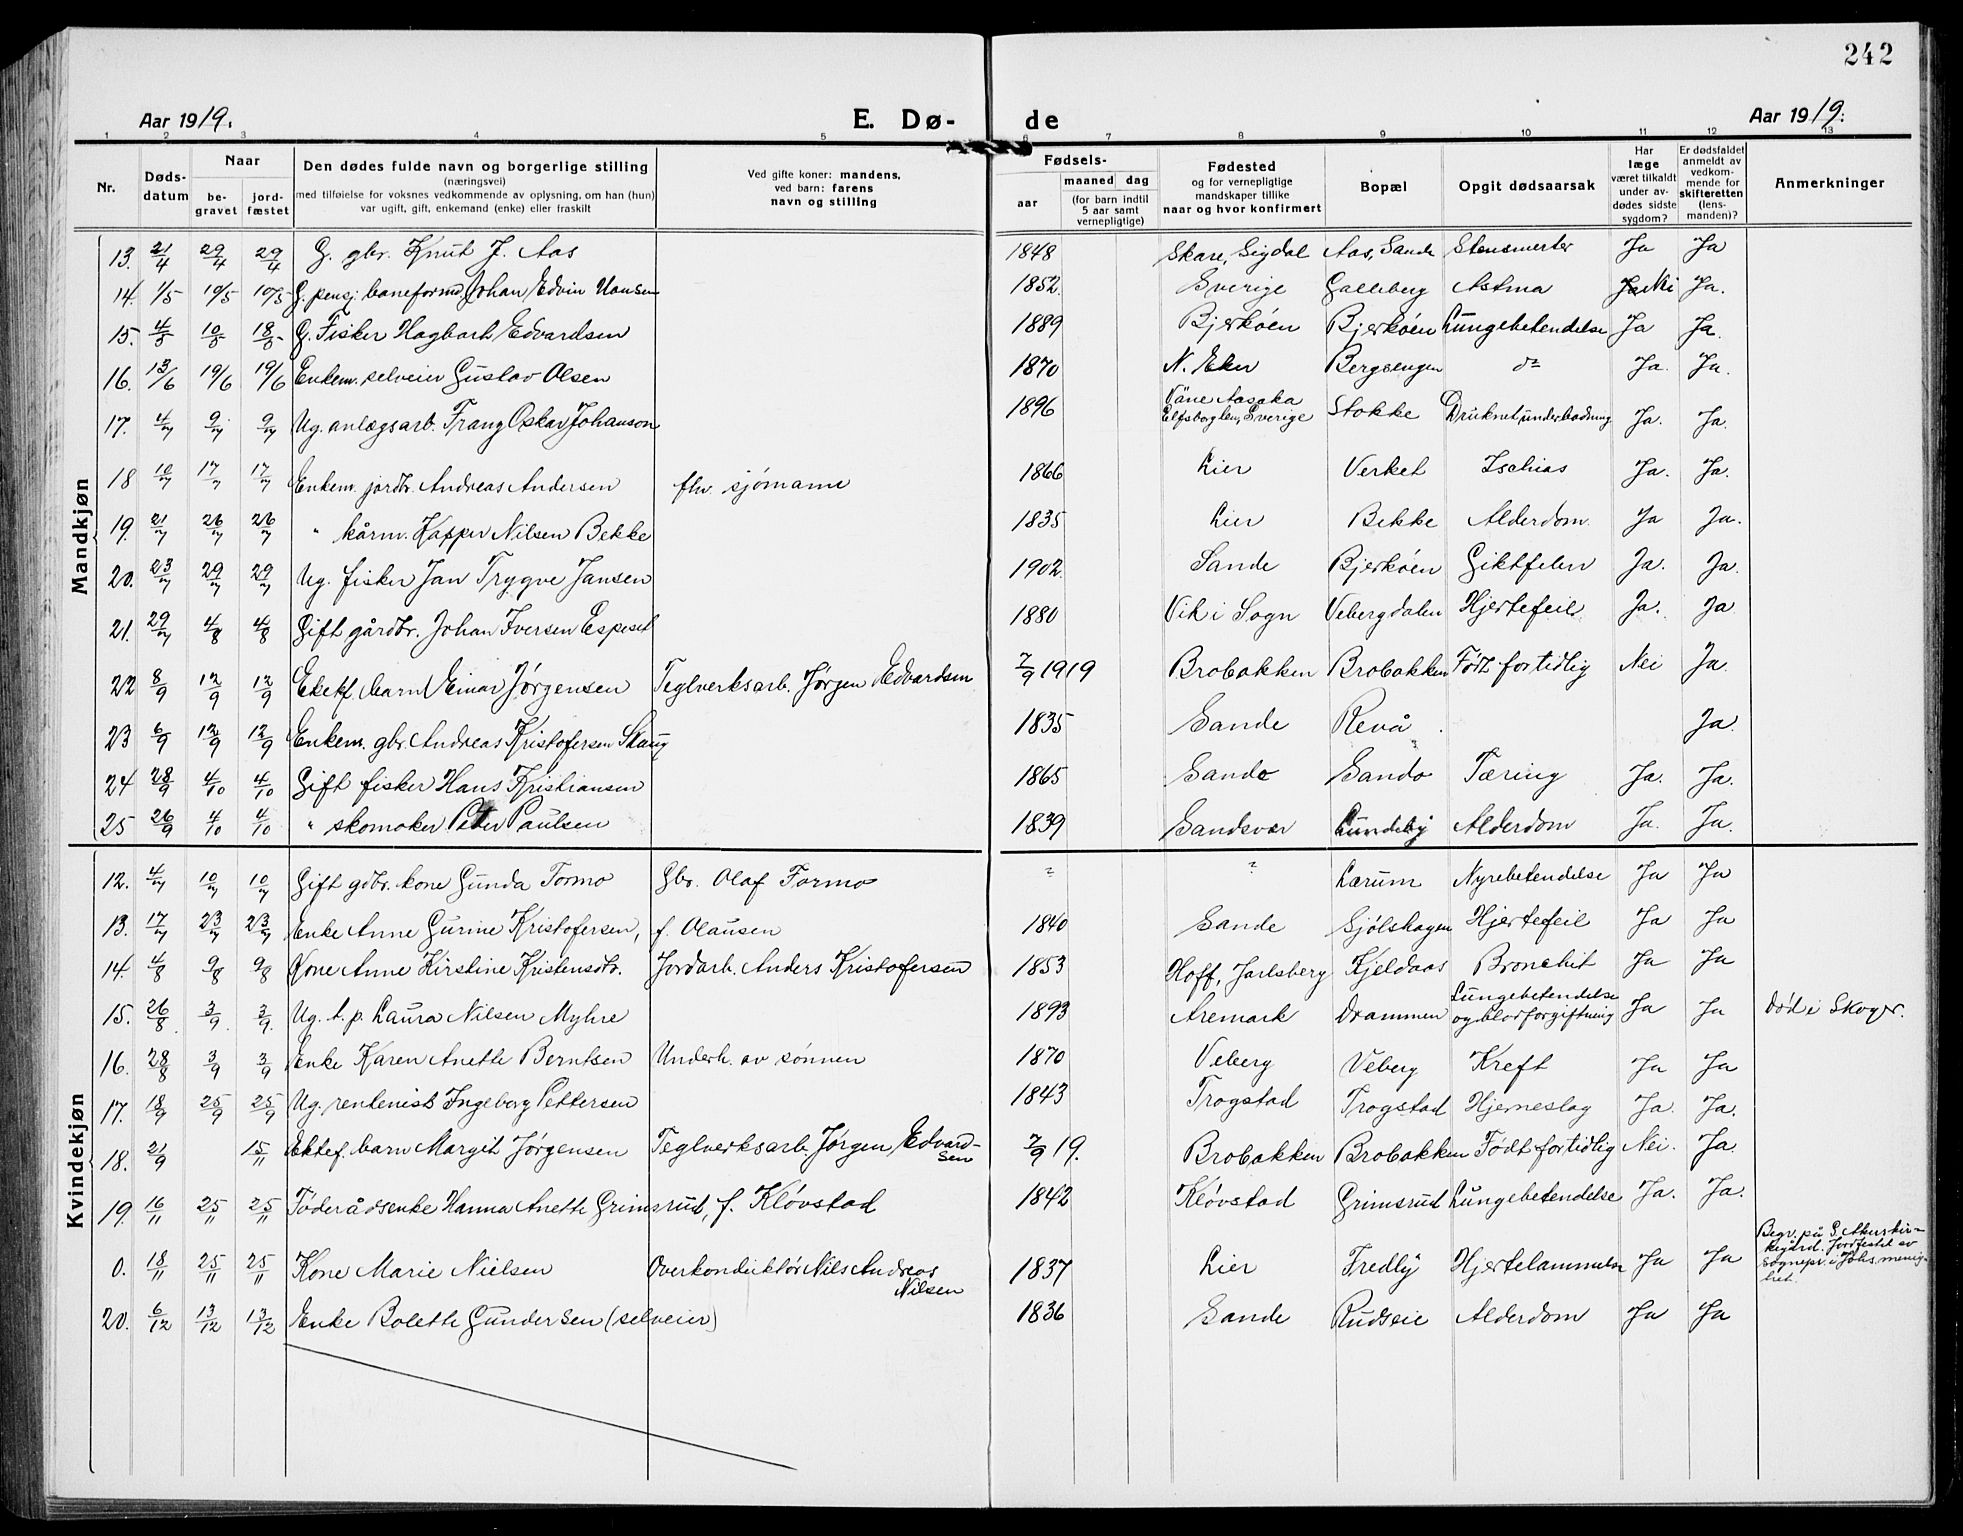 242
Aar 1919.
E. Dø-
de
Aar 1919.
1 2 3 4 5 6 7 8 9 10 11 12 13
Nr.
Døds-
datum
Naar
be-
gravet
jord-
fæstet
Den dødes fulde navn og borgerlige stilling
(næringsvei)
med tilføielse for voksnes vedkommende av oplysning, om han (hun)
var ugift, gift, enkemand (enke) eller fraskilt
Ved gifte koner: mandens,
ved barn: farens
navn og stilling
Fødsels-
aar
maaned dag
(for barn indtil
5 aar samt
vernepligtige)
Fødested
og for vernepligtige
mandskaper tillike
naar og hvor konfirmert
Bopæl
Opgit dødsaarsak
Har
læge
været tilkaldt
under av-
dødes sidste
sygdom?
Er dødsfaldet
anmeldt av
vedkom-
mende for
skifteretten
(lens-
manden)?
Anmerkninger
Mandkjøn
13. 21/4 29/4 29/4 G. gbr. Knut J. Aas 1848 Skare, Sigdal Aas, Sande Stensmerter Ja Ja
14. 1/5 10/5 10/5 G. pensj. baneformd. Johan Edvin Hansen 1852. Sverige Galleberg Astma Ja Nei Ja.
15. 4/5 10/5 18/5 G. Fisker Hagbart Edvardsen 1889 Bjerköen Bjerköen Lungebetendelse Ja Ja.
16. 13/6 19/6 19/6 Enkem. selveier Gustav Olsen 1870 N. Eker Bergsengen do Ja. Ja.
17. 4/7 9/7 9/7 Ug. anlægsarb. Franz Oskar Johanson 1896 Väne Aasaka
Elfsborg len, Sverige Stokke Druknet under badning Ja. Ja.
18 10/7 17/7 17/7 Enkem. jordbr. Andreas Andersen fhv. sjømann 1866 Lier Verket Ischias Ja. Ja.
19. 21/7 26/7 26/7 " kårm. Kasper Nilsen Bekke 1835 Lier Bekke Alderdom. Ja Ja.
20. 23/7 29/7 29/7 Ug. fisker Jan Trygve Jansen 1902. Sande Bjerköen Giktfeber Ja. Ja.
21. 29/7 4/8 4/8 Gift gårdbr. Johan Iversen Espeset 1880 Vik i Sogn Vebergdalen Hjertefeil Ja. Ja
22 8/9 12/9 12/9 Ektef. barn Einar Jørgensen Teglverksarb. Jørgen Edvardsen 7/9 1919 Brobakken Brobakken Født for tidlig Nei Ja.
23 6/9 12/9 12/9 Enkem. gbr. Andreas Kristofersen Skaug 1835 Sande Revå Ja.
24 28/9 4/10 4/10 Gift fisker Hans Kristiansen 1865 Sande Sande Tæring Ja. Ja.
25 26/9 4/10 4/10 " skomaker Peter Paulsen 1839 Sandsvær Lundeby Alderdom Ja. Ja.
Kvindekjøn
12. 4/7 10/7 10/7 Gift gdbr. kone Gunda Formo Gbr. Olaf Formo ? ? Lærum Nyrebetendelse Ja Ja
13. 17/7 23/7 23/7 Enke Anne Gurine Kristofersen, f. Olausen 1840 Sande Sjølshagen Hjertefeil Ja Ja
14. 4/8 9/8 9/8 Kone Anne Kirstine Kristensdtr. Jordarb. Anders Kristofersen 1853 Hoff, Jarlsberg Kjeldaas Bronchit Ja Ja
15. 26/8 3/9 3/9. Ug. t.p. Laura Nilsen Myhre 1893 Aremark Drammen Lungebetendelse
og blodforgiftning Ja Ja Död i Skoger.
16. 28/8 3/9 3/9 Enke Karen Anette Berntsen Underh. av sønnen 1870 Veberg Veberg Kreft Ja Ja
17. 18/9 25/9 25/9 Ug. rentenist Ingeborg Pettersen 1843 Trogstad Trogstad Hjerneslag Ja. Ja.
18. 21/9 15/11 Ektef. barn Margit Jørgensen Teglverksarb. Jørgen Edvard-
sen 7/9 19. Brobakken Brobakken Født for tidlig Nei. Ja.
19. 16/11 25/11 25/11 Føderådsenke Hanna Anette Grimsrud, f. Kløvstad 1842 Kløvstad Grimsrud Lungebetendelse Ja. Ja.
0. 18/11 25/11 25/11 Kone Marie Nielsen Overkonduktör Nils Andreas
Nilsen 1837 Lier Fredly Hjertelammelse Ja Ja Begr. på G. Akerskir-
kegård. Jordfestet av
sognepr. i Johs. menig-
het.
20. 6/12 13/12 13/12 Enke Bolette Gundersen (selveier) 1836 Sande Rudseie Alderdom Ja Ja